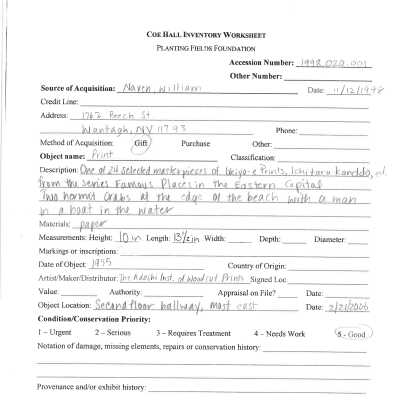 COE HALL INVENTORY WORKSHEET
PLANTING FIELDS FOUNDATION
Accession Number: 1998.020.001
Other Number:
Source of Acquisition: William Date: 11/12/1998
Credit Line:
Address: 1762 Beech St
Wantagh, NY 11793 Phone:
Method of Acquisition: Gift Purchase Other:
Object name: Print Classification:
Description: One of 24 selected masterpieces of Ukiyo-e Prints, Ichitaro Kondo, ed.
from the series Famous Places in the Eastern Capital
Two hermit crabs at the edge of the beach with a man
in a boat in the water
Materials: paper
Measurements: Height: 10 in Length: 13 1/2 in Width: Depth: Diameter:
Markings or inscriptions:
Date of Object: 1955 Country of Origin:
Artist/Maker/Distributor: The Adachi Inst. of Woodcut Prints Signed Loc:
Value: Authority: Appraisal on File? Date:
Object Location: Second floor hallway, most east Date: 2/21/2006
Condition/Conservation Priority:
1 – Urgent 2 – Serious 3 – Requires Treatment 4 – Needs Work 5 - Good
Notation of damage, missing elements, repairs or conservation history:
Provenance and/or exhibit history: